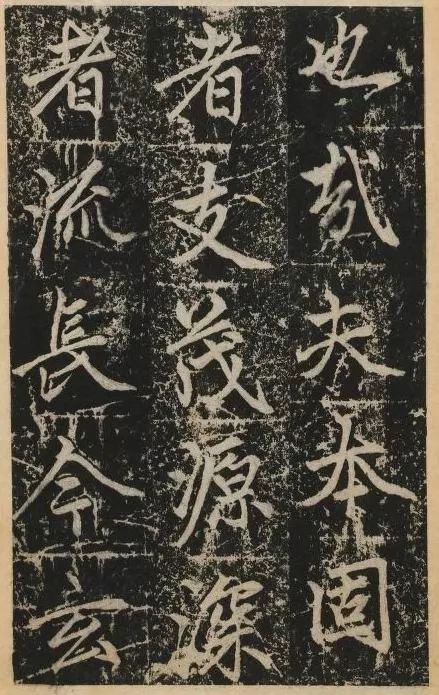 也哉夫本固
者支茂源深
者流長今玄